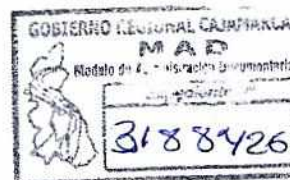 GOBIERNO REGIONAL CAJAMARCA
MAD
Modulo de Administracion Documentaria
3188426